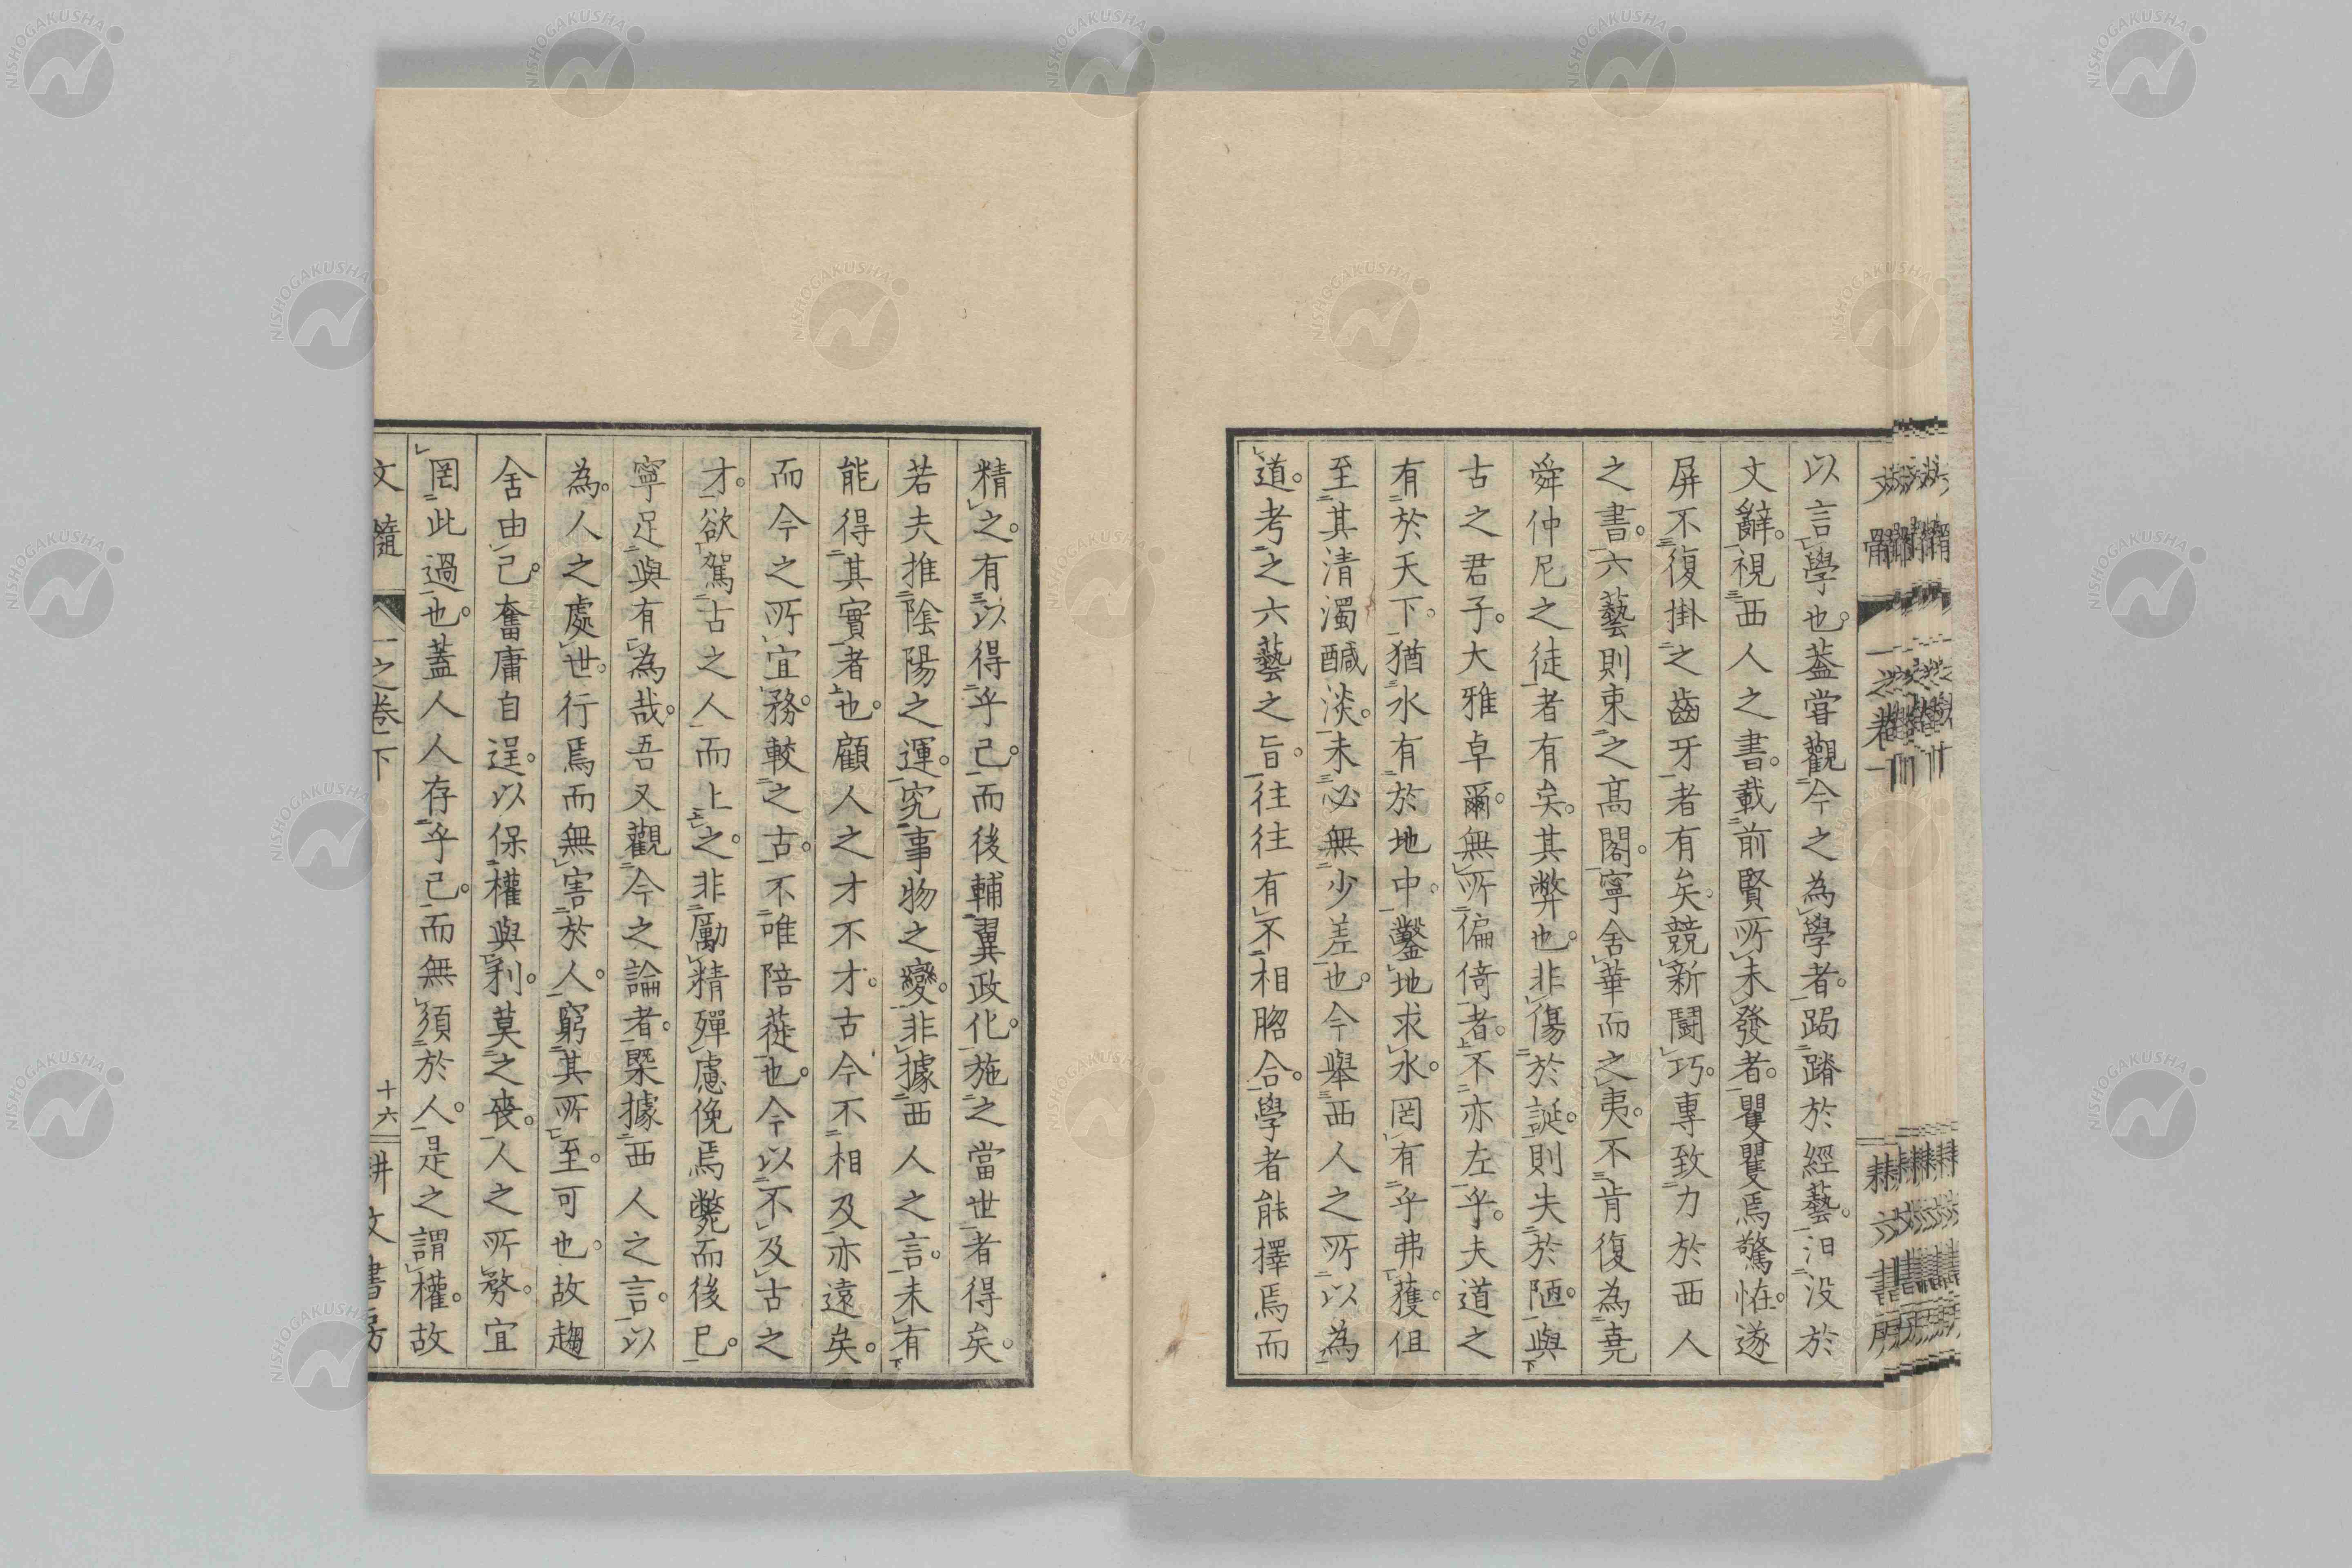 以言學也。蓋嘗觀今之為學者。跼蹐於經藝。汨没於
文辭。視西人之書。載前賢所未發者。瞿瞿焉驚恠。遂
屏不復掛之齒牙者有矣。競新鬪巧。專致力於西人
之書。六藝則束之髙閣。寧舍華而之夷。不肯復為堯
舜仲尼之徒者有矣。其弊也。非傷於誕。則失於陋。與
古之君子。大雅卓爾。無所偏倚者。不亦左乎。夫道之
有於天下。猶水有於地中。鑿地求水。罔有乎弗獲。但
至其清濁醎淡。未必無少差也。今舉西人之所以為
道。考之六藝之旨。往往有不相脗合。學者能擇焉而
精之。有以得乎己。而後輔翼政化。施之當世者得矣。
若夫推陰陽之運。究事物之變。非據西人之言。未有
能得其實者也。顧人之才不才。古今不相及亦遠矣。
而今之所宜務。較之古。不唯陪蓰也。今以不及古之
才。欲駕古之人而上之。非勵精殫慮俛焉斃而後已。
寧足與有為哉。吾又觀今之論者。槩據西人之言。以
為。人之處世。行焉而無害於人。窮其所至。可也。故趨
舍由己。奮庸自逞。以保權與利。莫之喪。人之所務。宜
罔此過也。蓋人人存乎己。而無須於人。是之謂權。故
文髓
一之卷下
十六
耕文書房
NISHOGAKUSHA